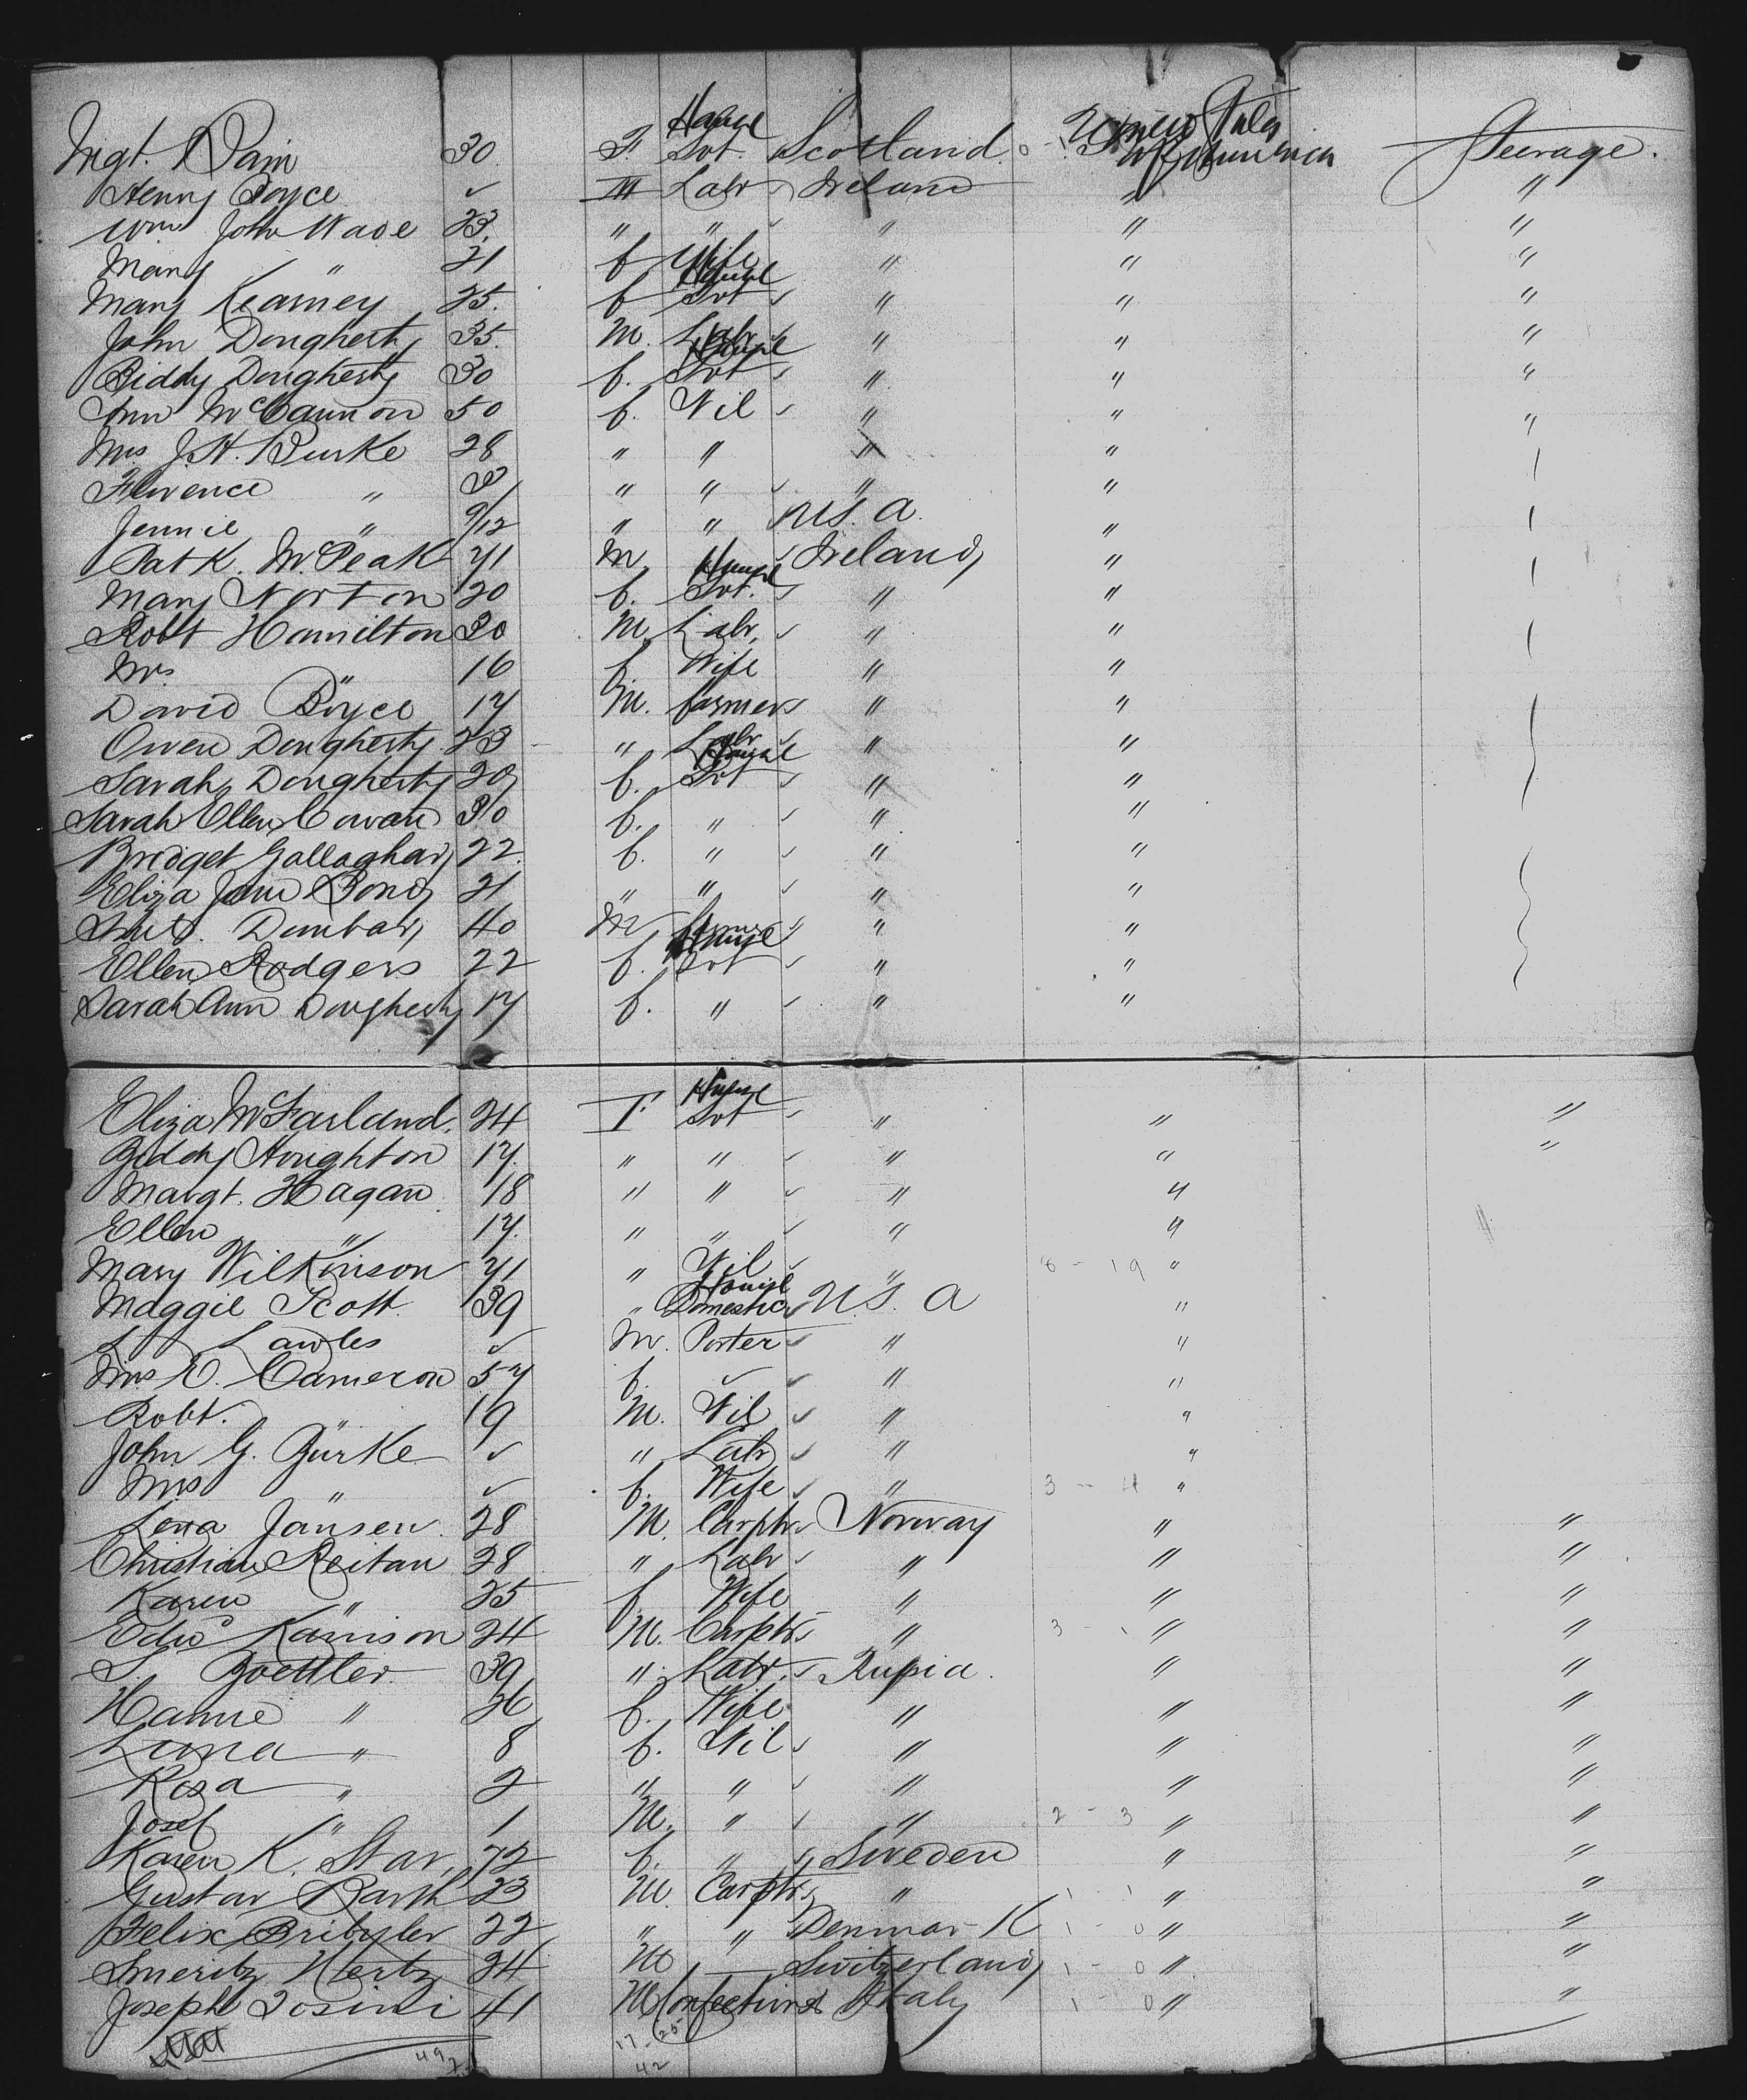 Mgt. Bain 30 F. House Svt. Scotland United States of America Steerage.
Henry Boyce ✓ M Labr Ireland " "
Wm John Wade 23. " " " " "
Mary " 21 f Wife " " "
Mary Kearney 25. f House Svt " " "
John Dougherty 35. M. Labr " " "
Biddy Dougherty 30 f. House Svt " " "
Ann McCannon 50 f. Nil " " "
Mrs J.H. Burke 28 " " " "
Florence " 3 " " " "
Jennie " 9/12 " " U.S.A. "
Patk. McPeak 21 M Ireland "
Mary Norton 20 f. House Svt. " "
Robt Hamilton 30 M. Labr. " "
Mrs " 16 f. Wife " "
David Boyce 17 M. farmer " "
Owen Dougherty 23 " Labr " "
Sarah Dougherty 20 f. House Svt " "
Sarah Ellen Cowan 30 f. " " "
Bridget Gallaghar 22. f. " " "
Eliza Jane Bond 21 " " " "
Dunbar 40 M " "
Ellen Rodgers 22 f. House Svt " "
Sarah Ann Dougherty 17 f. " " "
Eliza McFarland. 24 F House Svt " " "
Biddy Houghton 17. " " " " "
Margt. Hagan 18 " " " "
Ellen " 17. " " " "
Mary Wilkinson 21 " Nil " 8 - 19 "
Maggie Scott. 39 " House Domestic U.S.A "
L Lawles ✓ M. Porter " "
Mrs E. Cameron 57 f. ✓ " "
Robt. " 19 M. Nil " "
John G. Burke ✓ " Labr " "
Mrs " ✓ f. Wife " 3 - 4 "
Lena Jansen 28 M. Carptr Norway " "
Christian Reitan 28 " Labr " " "
Karen " 25 f. Wife " " "
Edwd Kanison 24 M. Carptr " 3 - 1 " "
S. Boettler 39 " Labr. Russia. " "
Hanne " 26 f. Wife " " "
Lina " 8 f. Nil " " "
Rosa " 2 " " " " "
Josef " 1 M. " " 2 - 3 " "
Karen K. Star 72 f. " Sweden " "
Gustav Barth 23 M. Carptr " 1 - 1 " "
Felix Pribyler 22 " " Denmark 1 - 0 " "
Hertz 24 M — Switzerland 1 - 0 " "
Joseph Tosini 41 M Confectioner Italy 1 - 0 " "
17 - 25
49
42